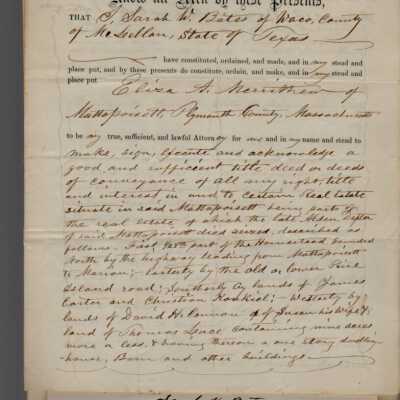 Know all Men by these Presents,
THAT I, Sarah W. Bates of Waco, County
of McLellan, State of Texas
have constituted, ordained, and made, and in my stead and
place put, and by these presents do constitute, ordain, and make, and in my stead and
place put Eliza A. Merrithew of
Mattapoisett, Plymouth County, Massachusetts
to be my true, sufficient, and lawful Attorney for me and in my name and stead to
make, sign, execute and acknowledge a
good and sufficient title deed or deeds
of conveyance of all my right, title
and interest in and to certain Real estate
situate in said Mattapoisett being part of
the real estate of which the late
of said Mattapoisett died seized, described as
follows. First, part of the Homestead bounded
North by the highway leading from Mattapoisett
to Marion; Easterly by the old or lower Pine
Island road; Southerly by lands of James
Carter and Christian; Westerly by
lands of David H. Cannon & of Susan his Wife &
land of Thomas Luce containing nine acres
more or less, & having thereon a one story dwelling
house, Barn and other buildings